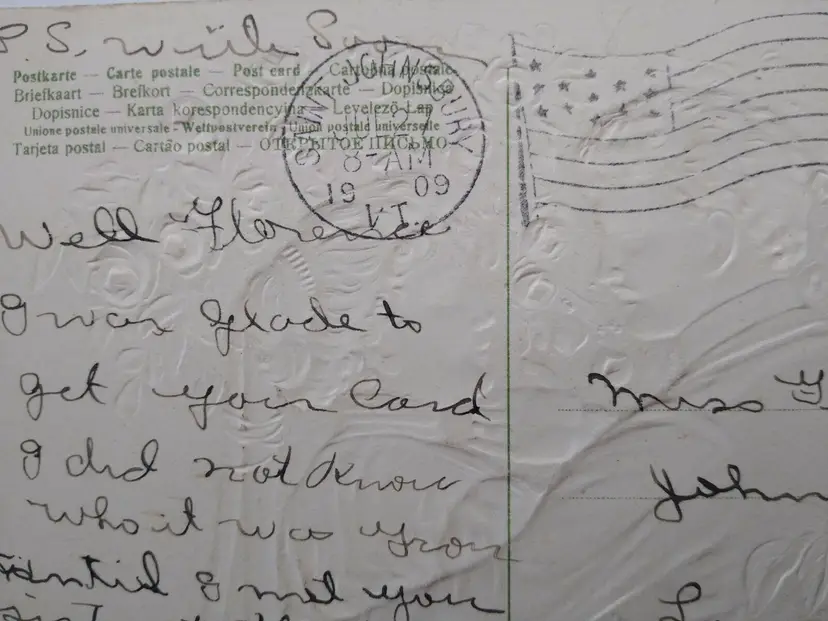 P.S. write Soon
Postkarte — Carte postale — Post card — Cartolina postale
Briefkaart — Brefkort — Correspondenzkarte — Dopisnica
Dopisnice — Karta korespondencyjna — Levelező-Lap
Unione postale universale - Weltpostverein - Union postale universelle
Tarjeta postal — Cartão postal — ОТКРЫТОЕ ПИСЬМО
ST. JOHNSBURY
8-AM
1909
VT.
Well Florence
I was glade to
get your Card
I did not Know
who it was from
I met you
Miss
John